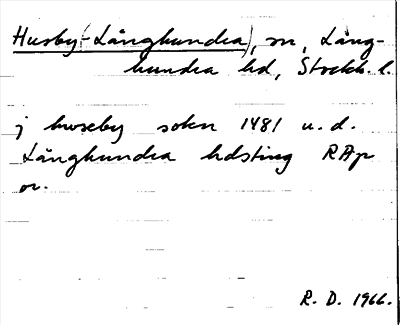 Husby (-Långhundra), sn, Lång-
hundra hd, Stockh. l.
j hwseby sokn 1481 u. d.
Långhundra hdsting RAp
or.
R. D. 1966.